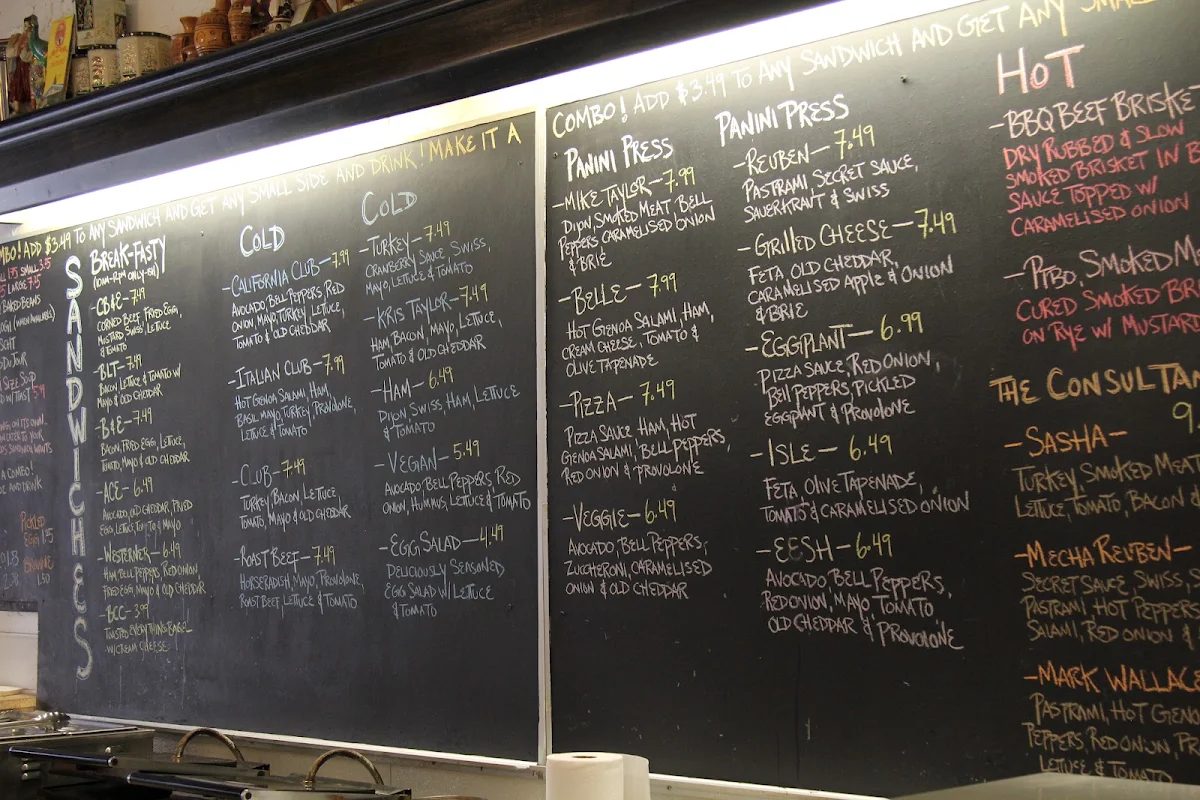 ADD $3.49 TO ANY SANDWICH AND GET ANY SMALL SIDE AND DRINK! MAKE IT A
COMBO! ADD $3.49 TO ANY SANDWICH AND GET ANY SMALL
BAKED BEANS
(WHEN AVAILABLE)
DU JOUR
SANDWICHES
BREAK-FASTY
-CB&E-7.49
CORNED BEEF, FRIED EGG,
MUSTARD, SWISS, LETTUCE
& TOMATO
-BLT-7.49
BACON LETTUCE & TOMATO W/
MAYO & OLD CHEDDAR
-B&E-7.49
BACON, FRIED EGG, LETTUCE,
TOMATO, MAYO & OLD CHEDDAR
-ACE-6.49
AVOCADO, OLD CHEDDAR, FRIED
EGG, LETTUCE, TOMATO & MAYO
-WESTERNER-6.49
HAM, BELL PEPPERS, RED ONION,
FRIED EGG, MAYO & OLD CHEDDAR
-BCC-3.99
TOASTED EVERYTHING BAGEL
W/CREAM CHEESE
COLD
-CALIFORNIA CLUB-7.99
AVOCADO, BELL PEPPERS, RED
ONION, MAYO, TURKEY, LETTUCE,
TOMATO & OLD CHEDDAR
-ITALIAN CLUB-7.99
HOT GENOA SALAMI, HAM,
BASIL MAYO, TURKEY, PROVOLONE,
LETTUCE & TOMATO
-CLUB-7.49
TURKEY, BACON, LETTUCE
TOMATO, MAYO & OLD CHEDDAR
-ROAST BEEF-7.49
HORSERADISH, MAYO, PROVOLONE,
ROAST BEEF, LETTUCE & TOMATO
COLD
-TURKEY-7.49
CRANBERRY SAUCE, SWISS,
MAYO, LETTUCE & TOMATO
-KRIS TAYLOR-7.49
HAM, BACON, MAYO, LETTUCE,
TOMATO & OLD CHEDDAR
-HAM-6.49
DIJON, SWISS, HAM, LETTUCE
& TOMATO
-VEGAN-5.49
AVOCADO, BELL PEPPERS, RED
ONION, HUMMUS, LETTUCE & TOMATO
-EGG SALAD-4.49
DELICIOUSLY SEASONED
EGG SALAD W/ LETTUCE
& TOMATO
PANINI PRESS
-MIKE TAYLOR-7.99
DIJON, SMOKED MEAT, BELL
PEPPERS, CARAMELISED ONION
& BRIE
-BELLE-7.99
HOT GENOA SALAMI, HAM,
CREAM CHEESE, TOMATO &
OLIVE TAPENADE
-PIZZA-7.49
PIZZA SAUCE, HAM, HOT
GENOA SALAMI, BELL PEPPERS,
RED ONION & PROVOLONE
-VEGGIE-6.49
AVOCADO, BELL PEPPERS,
ZUCCHERONI, CARAMELISED
ONION & OLD CHEDDAR
PANINI PRESS
-REUBEN-7.49
PASTRAMI, SECRET SAUCE,
SAUERKRAUT & SWISS
-GRILLED CHEESE-7.49
FETA, OLD CHEDDAR,
CARAMELISED APPLE & ONION
& BRIE
-EGGPLANT-6.99
PIZZA SAUCE, RED ONION,
BELL PEPPERS, PICKLED
EGGPLANT & PROVOLONE
-ISLE-6.49
FETA, OLIVE TAPENADE,
TOMATO & CARAMELISED ONION
-EESH-6.49
AVOCADO, BELL PEPPERS,
RED ONION, MAYO, TOMATO
OLD CHEDDAR & PROVOLONE
HOT
-BBQ BEEF BRISKE
DRY RUBBED & SLOW
SMOKED BRISKET IN B
SAUCE TOPPED W/
CARAMELISED ONION
-PTBO. SMOKED M
CURED SMOKED BR
ON RYE W/ MUSTAR
THE CONSULTAN
9
-SASHA-
TURKEY, SMOKED MEAT
LETTUCE, TOMATO, BACON
-MECHA REUBEN-
SECRET SAUCE, SWISS, S
PASTRAMI, HOT PEPPERS
SALAMI, RED ONION &
-MARK WALLAC
PASTRAMI, HOT GENO
PEPPERS, RED ONION, P
LETTUCE & TOMATO